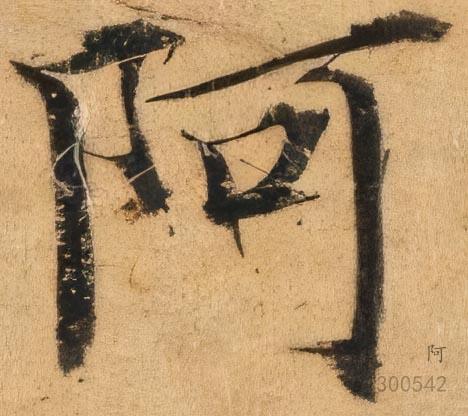 阿
阿
300542